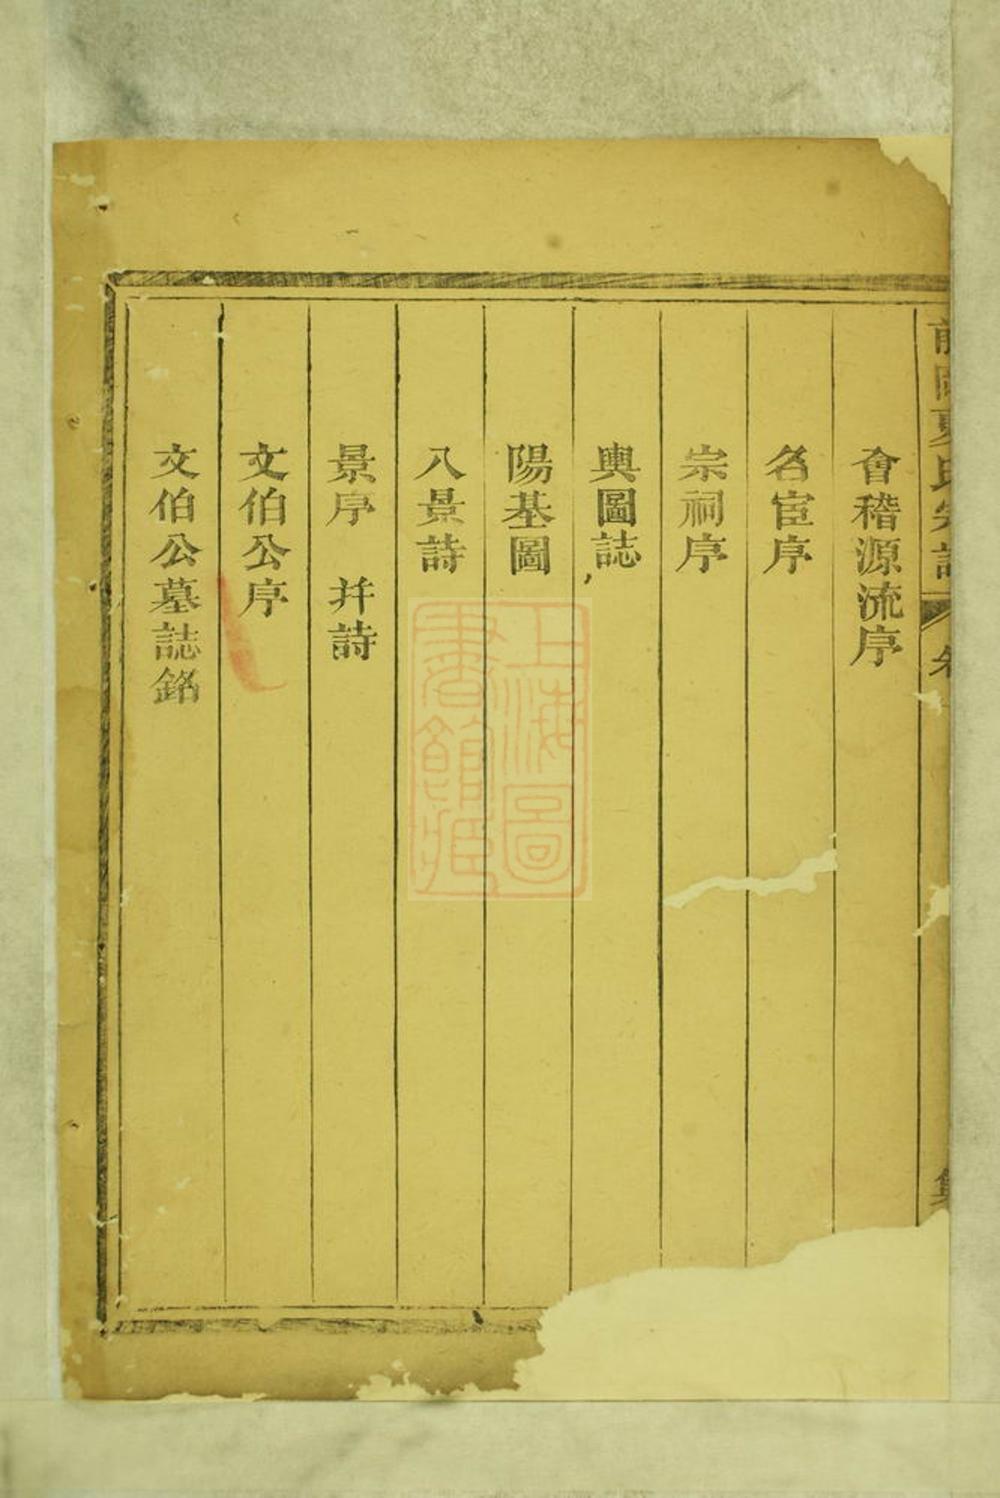 夏氏宗譜
會稽源流序
名宦序
宗祠序
輿圖誌
陽基圖
八景詩
景序 幷詩
文伯公序
文伯公墓誌銘
上海圖
書館藏